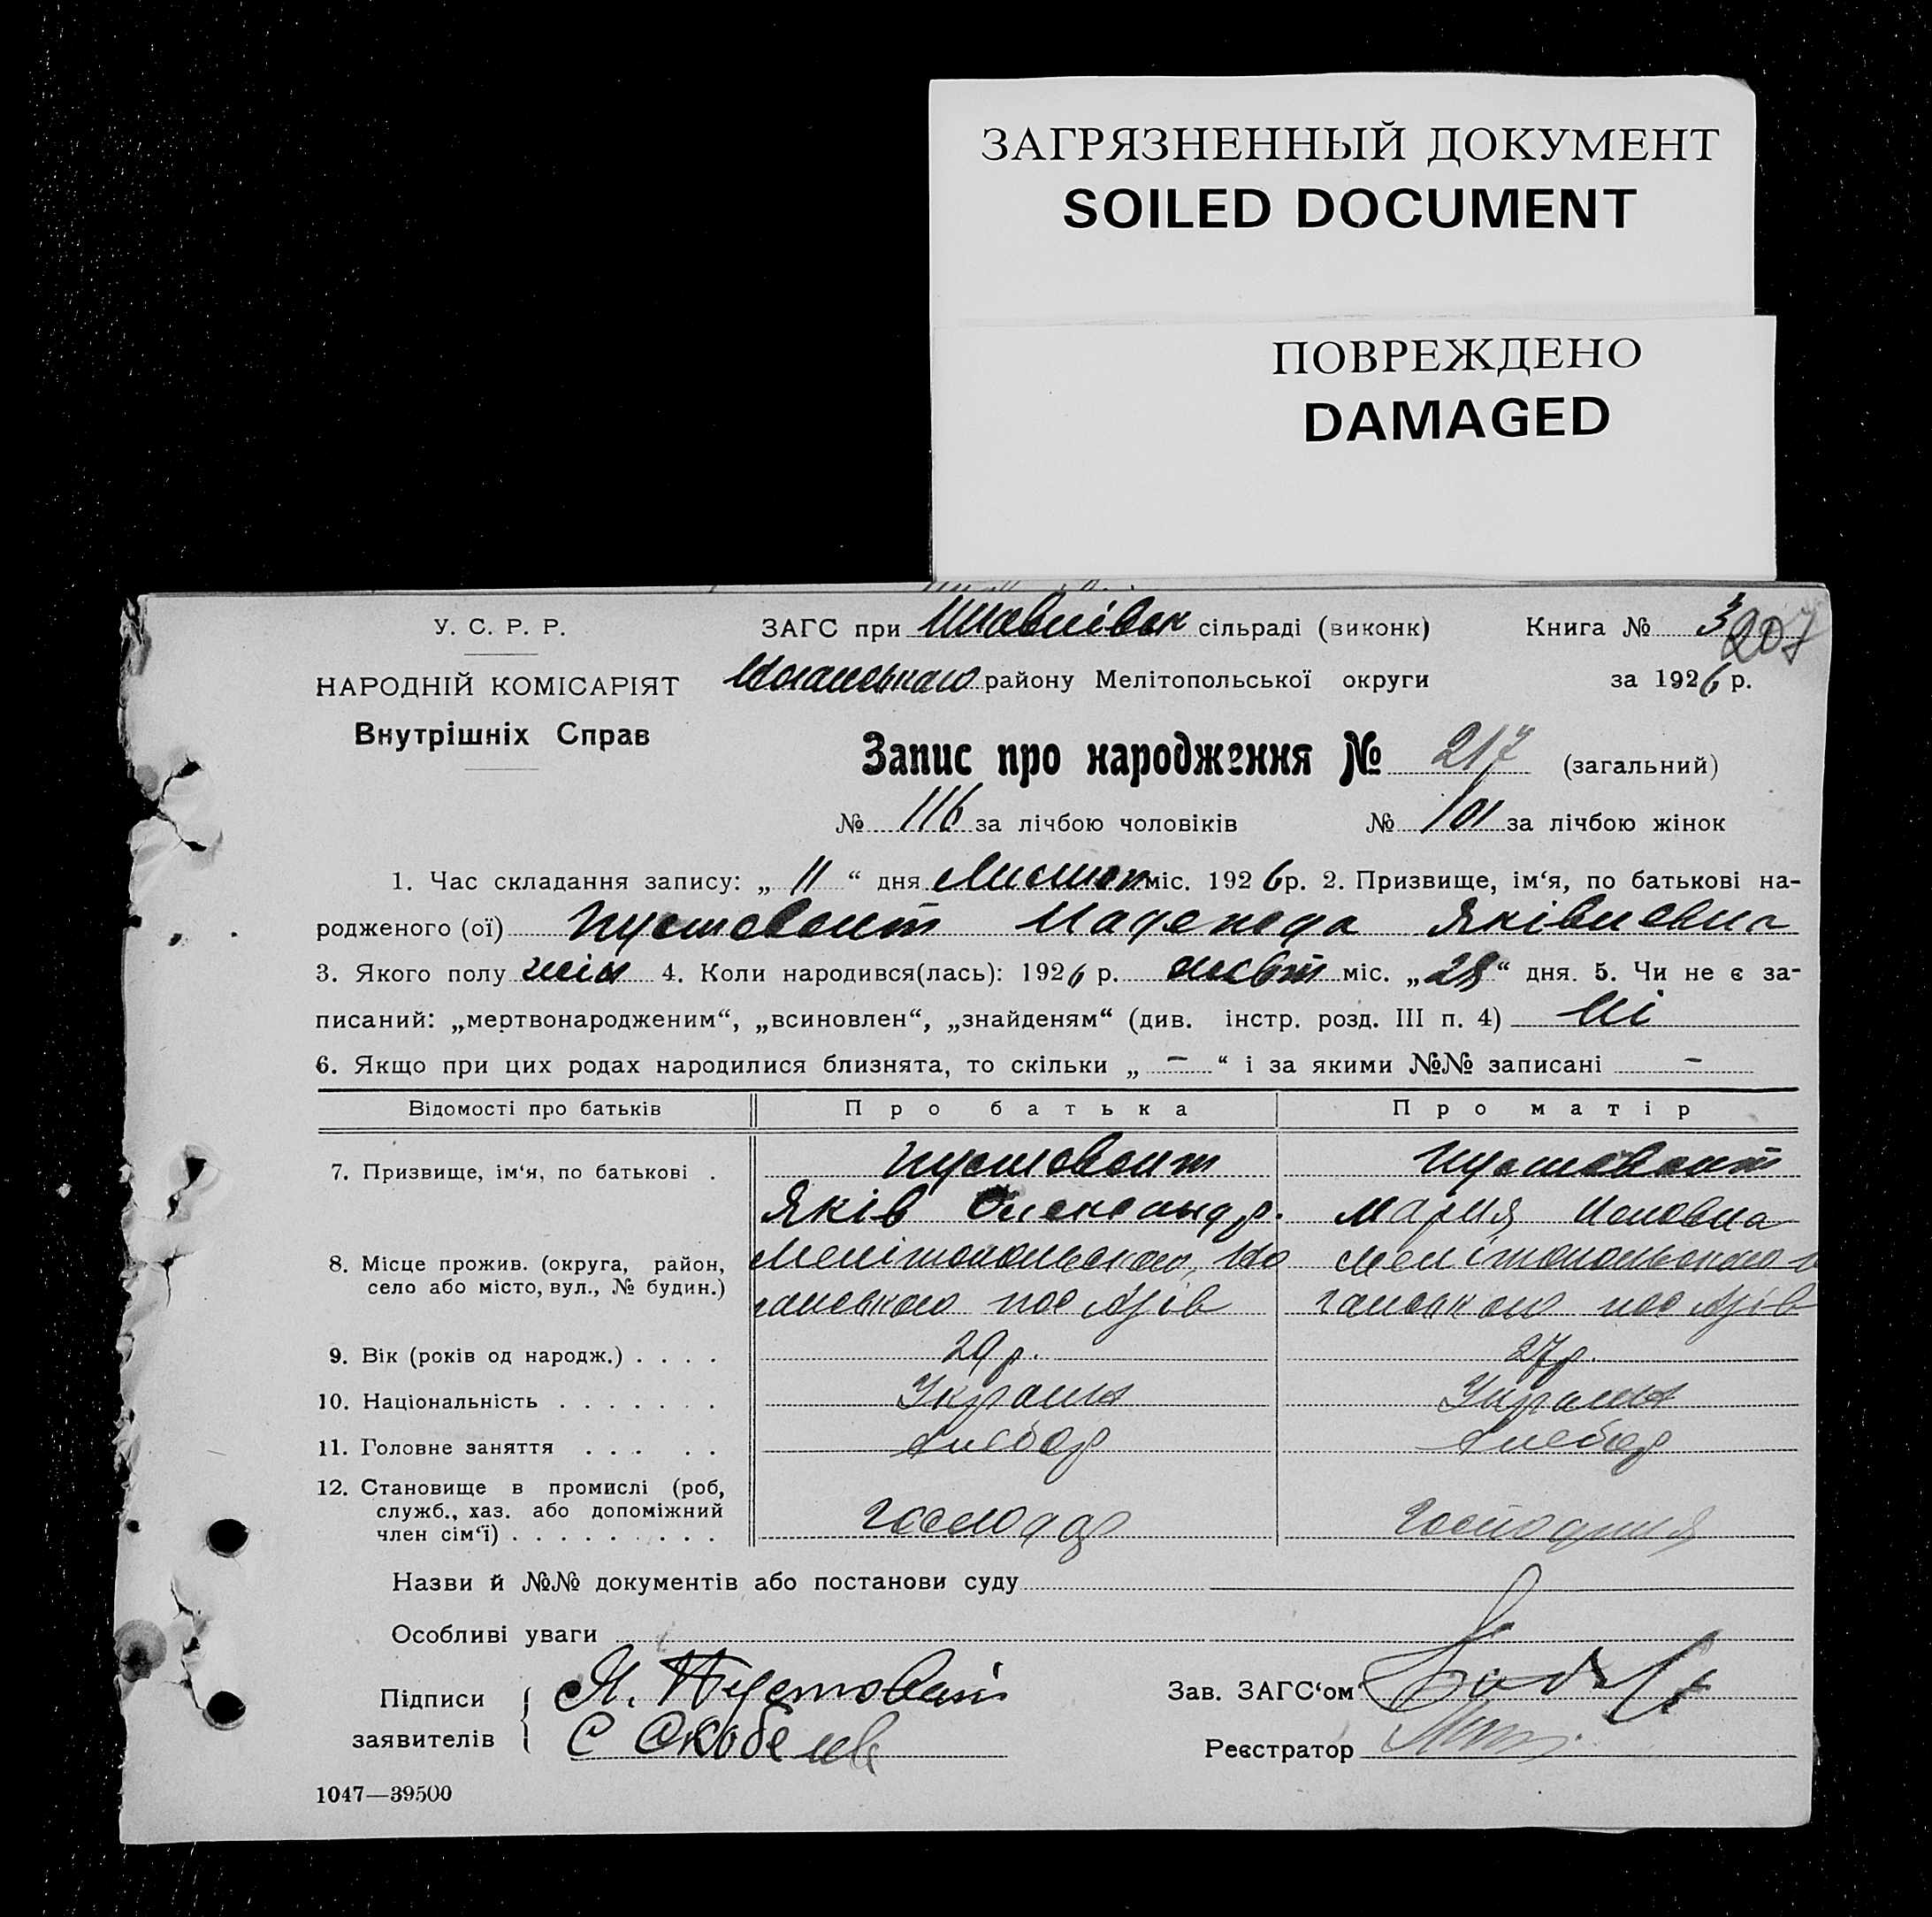 ЗАГРЯЗНЕННЫЙ ДОКУМЕНТ
SOILED DOCUMENT
ПОВРЕЖДЕНО
DAMAGED
У. С. Р. Р.
НАРОДНІЙ КОМІСАРІЯТ
Внутрішніх Справ
ЗАГС при сільраді (виконк) Книга № 3 207
району Мелітопольської округи за 1926 р.
Запис про народження № 217 (загальний)
№ 116 за лічбою чоловіків № 101 за лічбою жінок
1. Час складання запису: „ 11 “ дня Листоп міс. 1926 р. 2. Призвище, ім‘я, по батькові на-
родженого (ої) Пустовоит Надежда Яківлевна
3. Якого полу жін 4. Коли народився(лась): 1926 р. жовт міс. „28“ дня. 5. Чи не є за-
писаний: „мертвонародженим“, „всиновлен“, „знайденям“ (див. інстр. розд. III п. 4) Ні
6. Якщо при цих родах народилися близнята, то скільки „ – “ і за якими №№ записані –
Відомості про батьків Про батька Про матір
7. Призвище, ім‘я, по батькові . Пустовоит Пустовоит
Яків Олександр. Мария
8. Місце прожив. (округа, район, село або місто, вул., № будин.) Мелітопольского, Мелітопольского
пос Азів пос Азів
9. Вік (років од народж.) . . . . 29 р. 27 р.
10. Національність . . . . . . . Украин Украин
11. Головне заняття . . . . . Хлебор Хлебор
12. Становище в промислі (роб, служб., хаз. або допоміжний член сім‘ї) . . . . . . . . . Господар Господиня
Назви й №№ документів або постанови суду
Особливі уваги
Підписи заявителів { Я. Пустовайт
С Скобелев
Зав. ЗАГС‘ом
Реєстратор
1047—39500